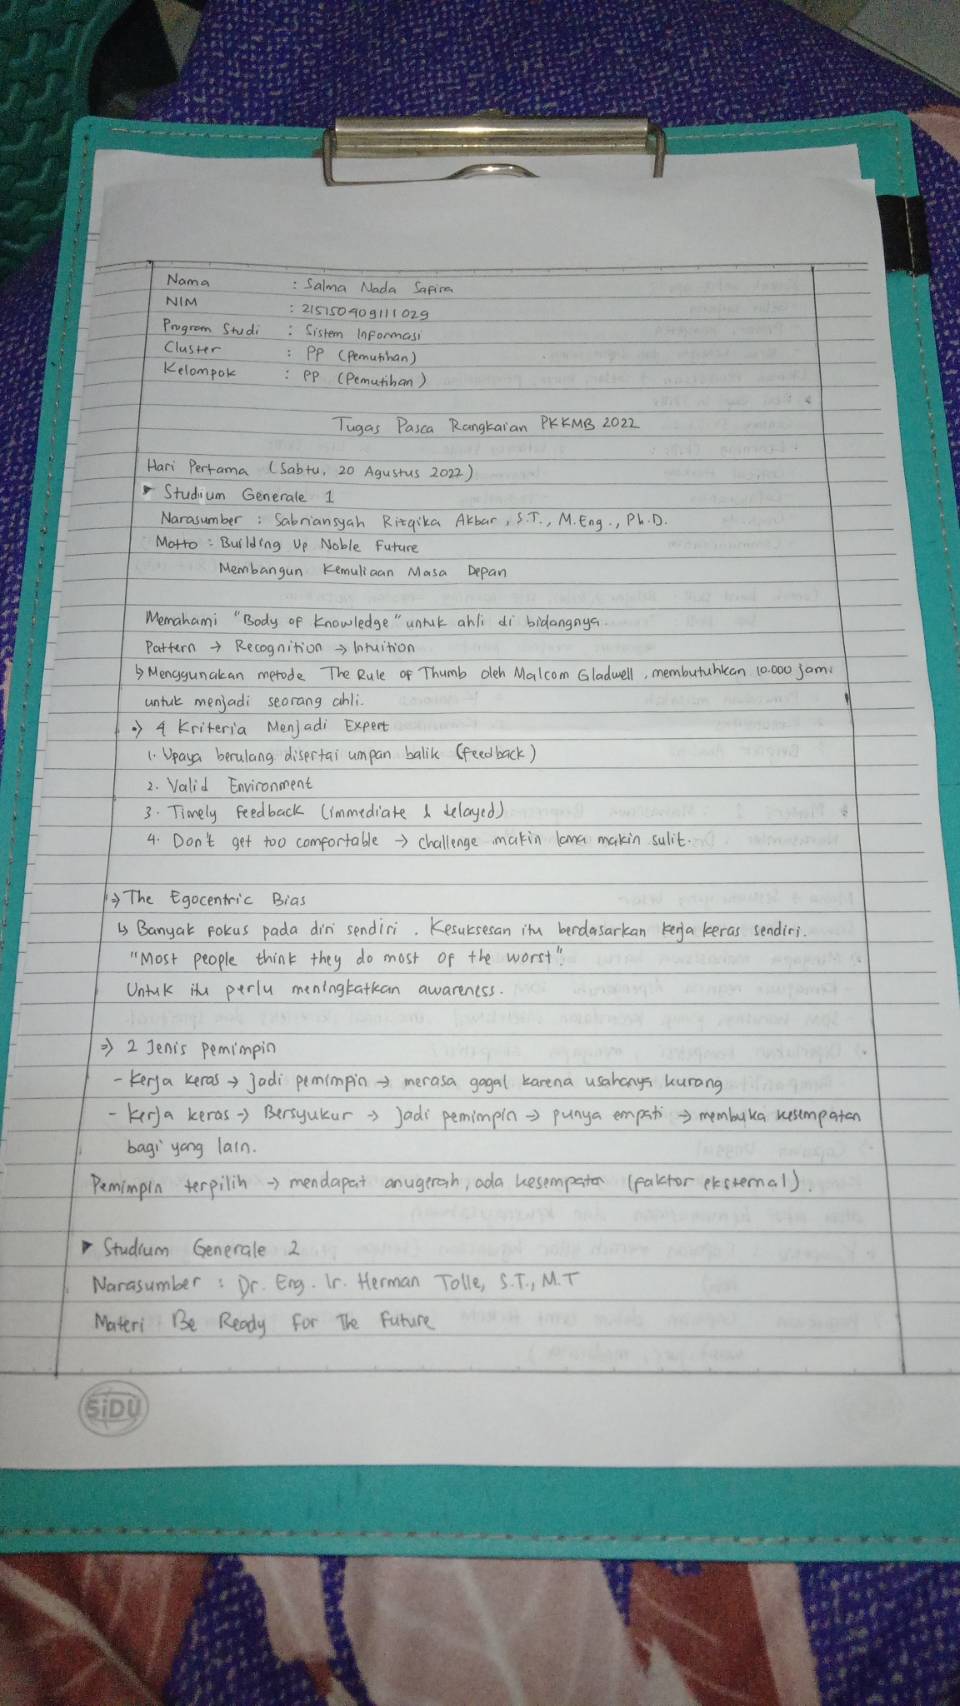 Nama : Salma Nada Safira
NIM : 215150409111029
Program Studi : Sistem Informasi
Cluster : PP (Pemutihan)
Kelompok : PP (Pemutihan)
Tugas Pasca Rangkaian PKKMB 2022
Hari Pertama (Sabtu, 20 Agustus 2022)
▶ Studium Generale 1
Narasumber : Sabriansyah Rizqika Akbar, S.T., M.Eng., Ph.D.
Motto : Building Up Noble Future
Membangun Kemuliaan Masa Depan
Memahami "Body of Knowledge" untuk ahli di bidangnya.
Pattern → Recognition → Intuition
↳ Menggunakan metode The Rule of Thumb oleh Malcom Gladwell, membutuhkan 10.000 jam
untuk menjadi seorang ahli.
⇒ 4 Kriteria Menjadi Expert
1. Upaya berulang disertai umpan balik (feedback)
2. Valid Environment
3. Timely Feedback (immediate & delayed)
4. Don't get too comfortable → challenge makin lama makin sulit.
⇒ The Egocentric Bias
↳ Banyak fokus pada diri sendiri. Kesuksesan itu berdasarkan kerja keras sendiri.
"Most people think they do most of the worst".
Untuk itu perlu meningkatkan awareness.
⇒ 2 Jenis pemimpin
- Kerja keras → jadi pemimpin → merasa gagal karena usahanya kurang
- Kerja keras → Bersyukur → Jadi pemimpin → punya empati → membuka kesempatan
bagi yang lain.
Pemimpin terpilih → mendapat anugerah, ada kesempatan (faktor eksternal).
▶ Studium Generale 2
Narasumber : Dr. Eng. Ir. Herman Tolle, S.T., M.T
Materi : Be Ready For The Future
SiDU